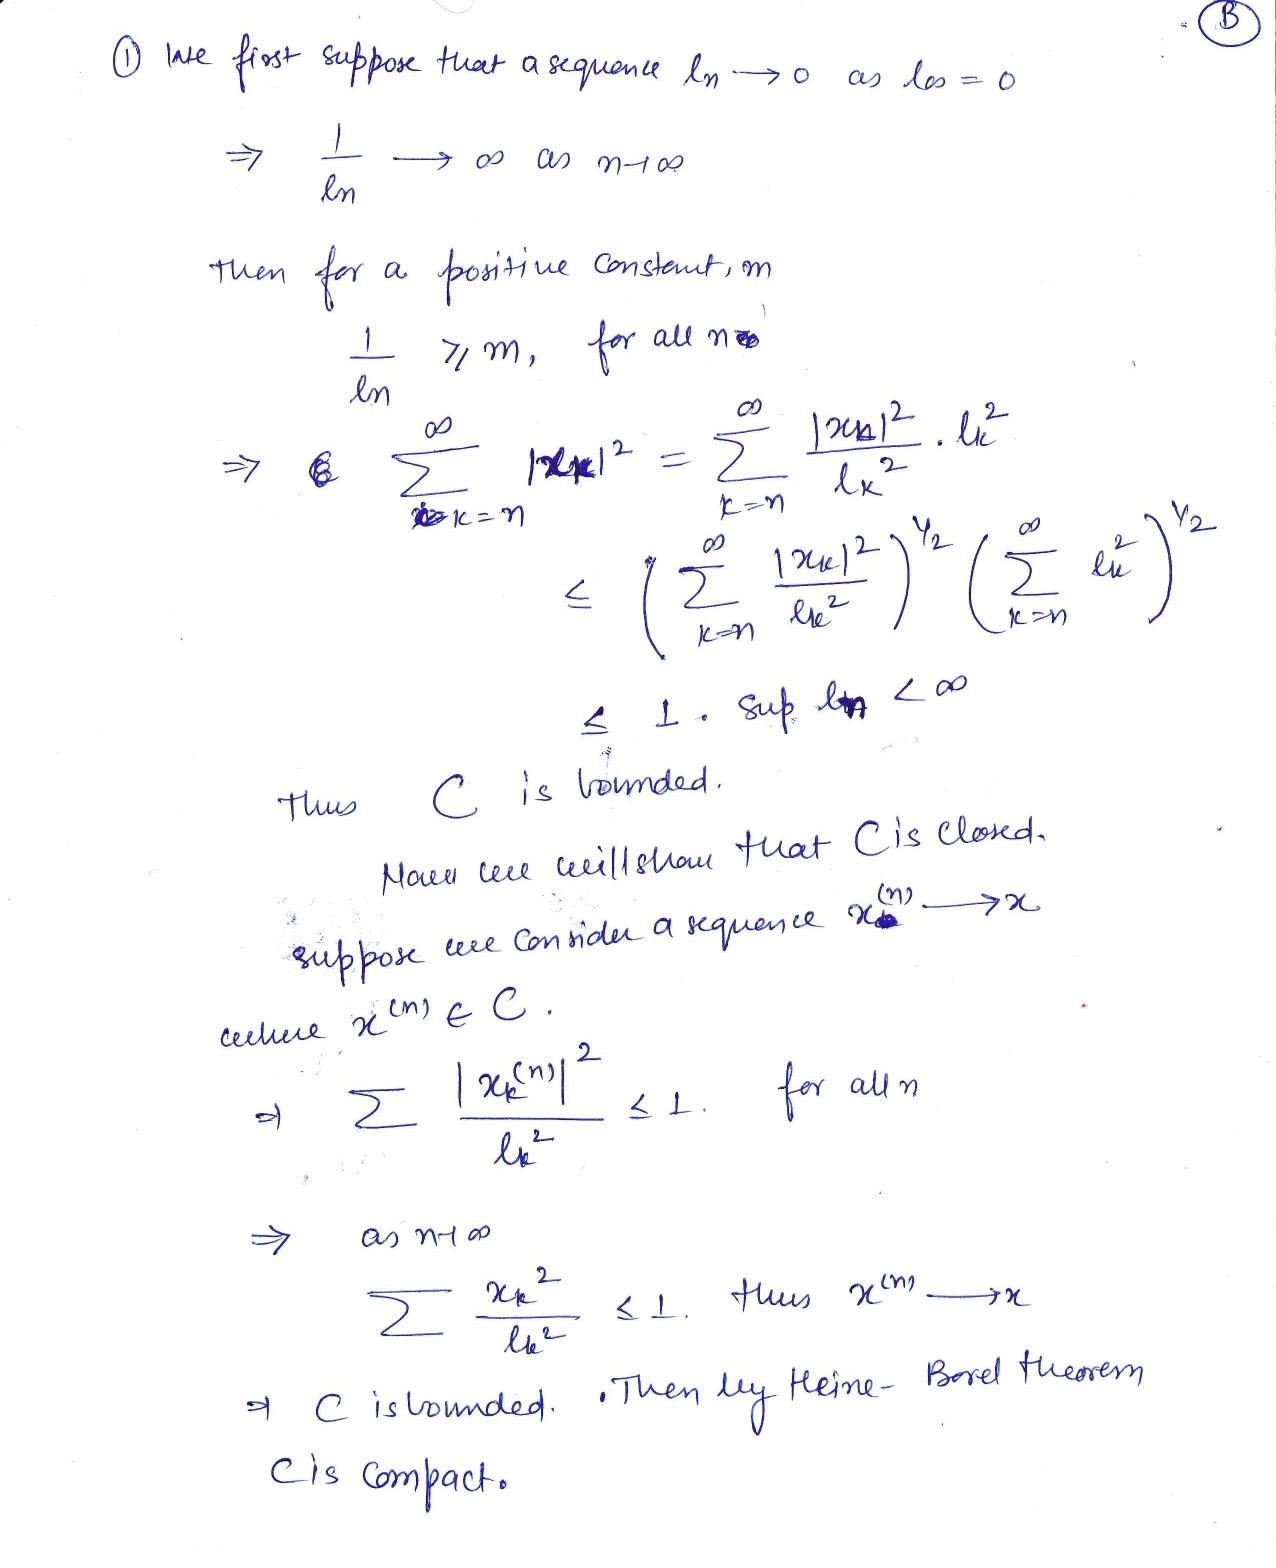 B
① We first suppose that a sequence ln → 0 as l∞ = 0
⇒ 1/ln → ∞ as n→∞
Then for a positive constant, m
1/ln ⩾ m, for all n
⇒ ∑_{k=n}^{∞} |xk|^2 = ∑_{k=n}^{∞} |xk|^2/lk^2 . lk^2
≤ (∑_{k=n}^{∞} |xk|^2/lk^2)^{1/2} (∑_{k=n}^{∞} lk^2)^{1/2}
≤ 1 . Sup ln < ∞
Thus C is bounded.
Now we will show that C is Closed.
Suppose we Consider a sequence x^(n) → x
where x^(n) ∈ C.
⇒ ∑ |xk^(n)|^2/lk^2 ≤ 1. for all n
⇒ as n→∞
∑ xk^2/lk^2 ≤ 1. thus x^(n) → x
⇒ C is bounded. . Then by Heine-Borel theorem
C is Compact.